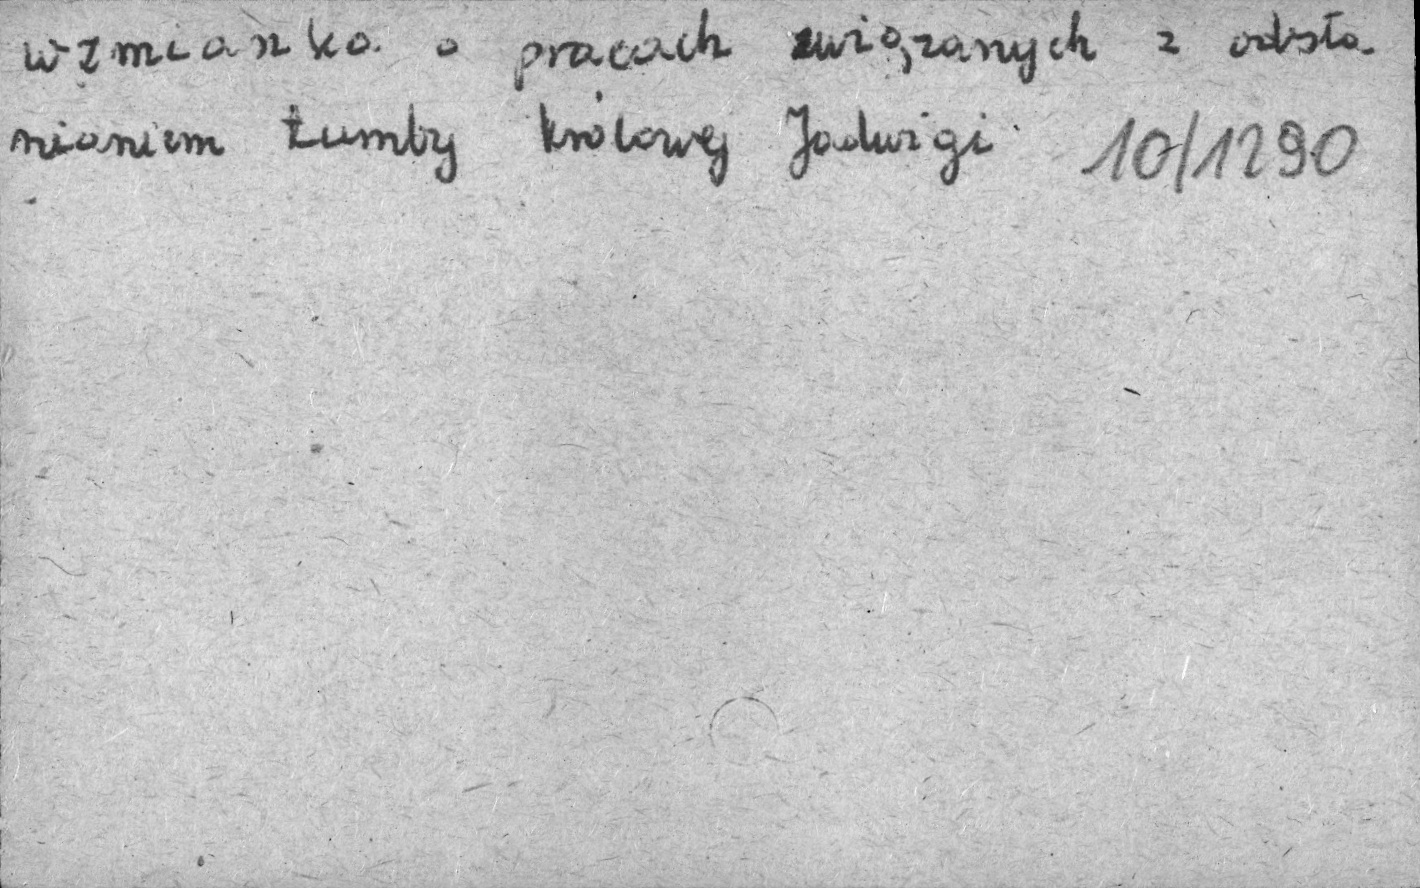 wzmianka o pracach związanych z odsła-
nianiem tumby królowej Jadwigi 10/1290